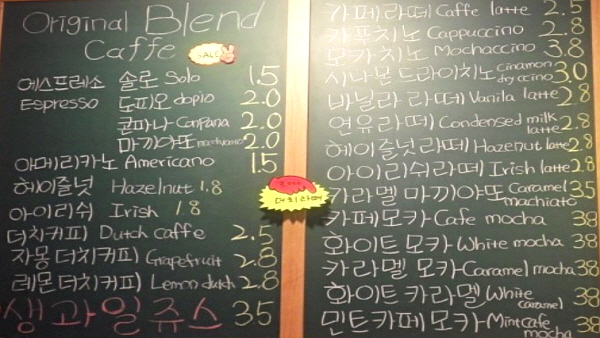 Original Blend
Caffe
SALE
에스프레소 솔로 Solo 1.5
Espresso 도피오 dopio 2.0
콘파나 Conpana 2.0
마끼아또 2.0
아메리카노 Americano 1.5
헤이즐넛 Hazelnut 1.8
아이리쉬 Irish 1.8
더치커피 Dutch caffe 2.5
자몽더치커피 Grapefruit 2.8
레몬더치커피 Lemon dutch 2.8
생과일쥬스 35
더치라떼
카페라떼 Caffe latte 2.5
카푸치노 Cappuccino 2.8
모카치노 Mochaccino 3.8
시나몬드라이치노 Cinamon dry ccino 3.0
바닐라 라떼 Vanila latte 2.8
연유라떼 Condensed milk latte 2.8
헤이즐넛라떼 Hazelnut latte 2.8
아이리쉬라떼 Irish latte 2.8
카라멜 마끼야또 Caramel machiato 35
카페모카 Cafe mocha 38
화이트 모카 White mocha 38
카라멜 모카 Caramel mocha 38
화이트 카라멜 White caramel 38
민트카페모카 Mint cafe mocha 38